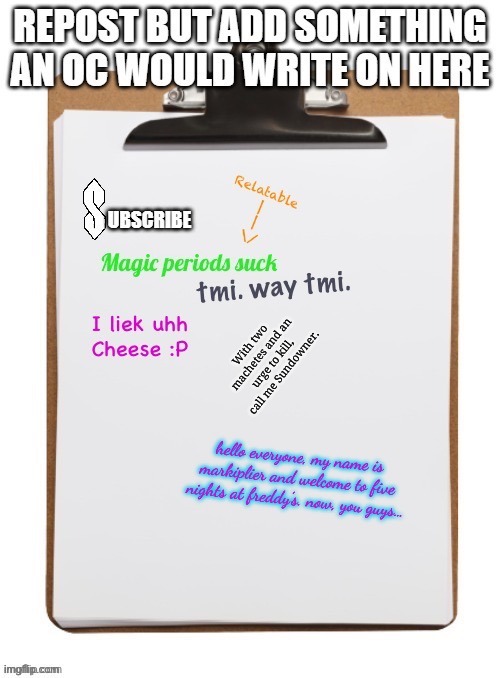 REPOST BUT ADD SOMETHING
AN OC WOULD WRITE ON HERE
Relatable
SUBSCRIBE
Magic periods suck
tmi. way tmi.
I liek uhh
Cheese :P
With two
machetes and an
urge to kill,
call me Sundowner.
hello everyone, my name is
markiplier and welcome to five
nights at freddy's. now, you guys...
imgflip.com